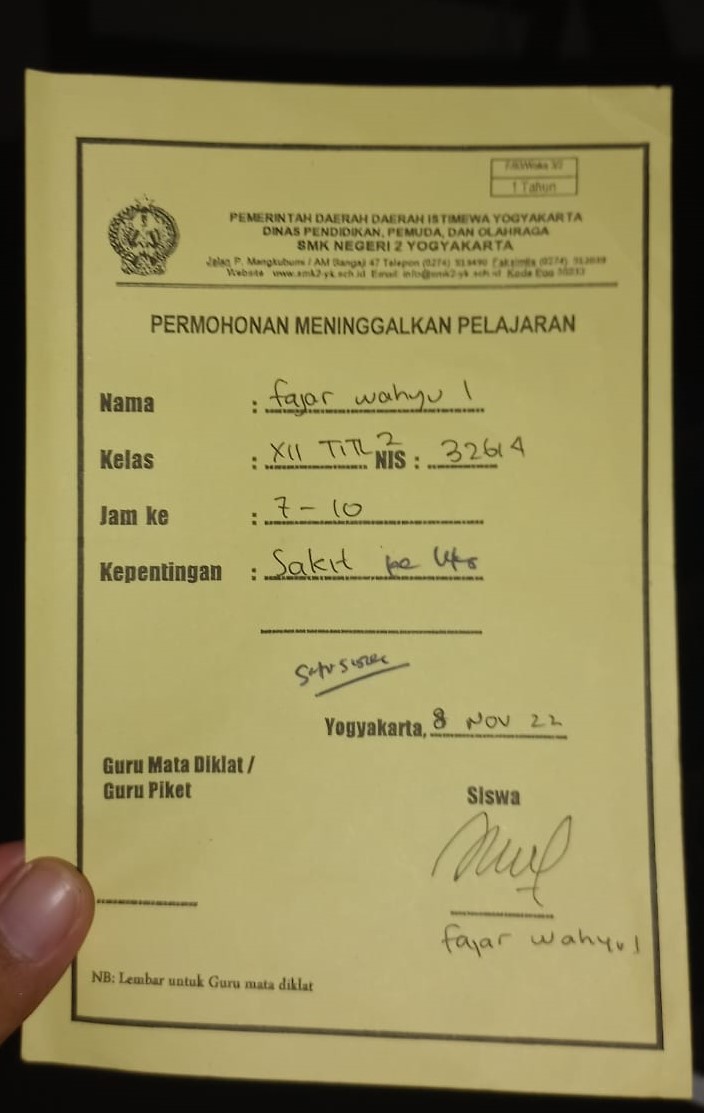 1 Tahun
PEMERINTAH DAERAH DAERAH ISTIMEWA YOGYAKARTA
DINAS PENDIDIKAN, PEMUDA, DAN OLAHRAGA
SMK NEGERI 2 YOGYAKARTA
Jalan P. Mangkubumi / AM Sangaji 47 Telepon (0274) Faksimile (0274)
Website www.smk2-yk.sch.id Email info@smk2-yk.sch.id Kode Pos
PERMOHONAN MENINGGALKAN PELAJARAN
Nama : fajar wahyu I
Kelas : XII TITL 2 NIS : 32614
Jam ke : 7 - 10
Kepentingan : Sakit ke UKS
Yogyakarta, 8 NOV 22
Guru Mata Diklat /
Guru Piket
Siswa
fajar wahyu I
NB: Lembar untuk Guru mata diklat